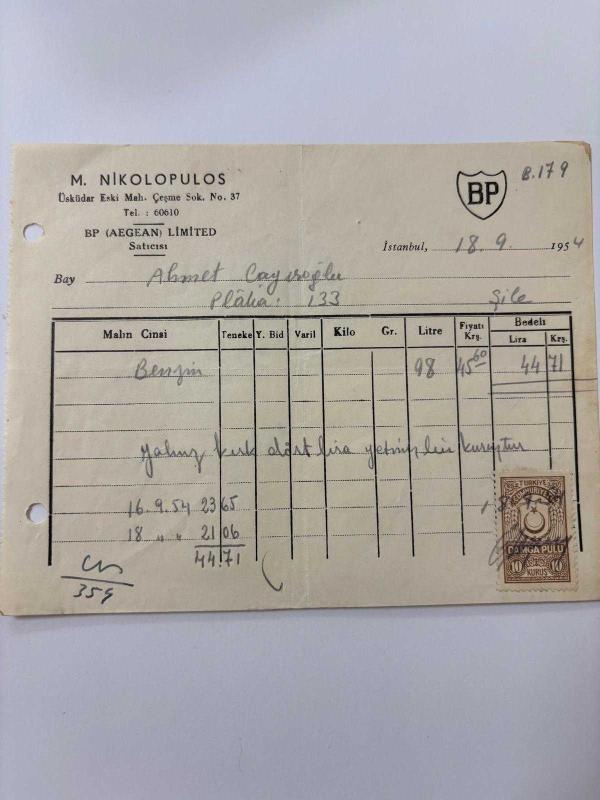 M. NİKOLOPULOS
Üsküdar Eski Mah. Çeşme Sok. No. 37
Tel. : 60610
BP (AEGEAN) LİMİTED
Satıcısı
BP
B.179
İstanbul, 18.9. 1954
Bay Ahmet
Plâka: 133 Şile
Malın Cinsi Teneke Y. Bid Varil Kilo Gr. Litre Fiyatı Krş. Bedeli Lira Krş.
Benzin 98 45 60 44 71
Yalnız kırk dört lira yetmiş bir kuruştur
16.9.54 23 65
18 " " 21 06
44.71
359
TÜRKİYE
CUMHURİYETİ
DAMGA PULU
10 KURUŞ 10